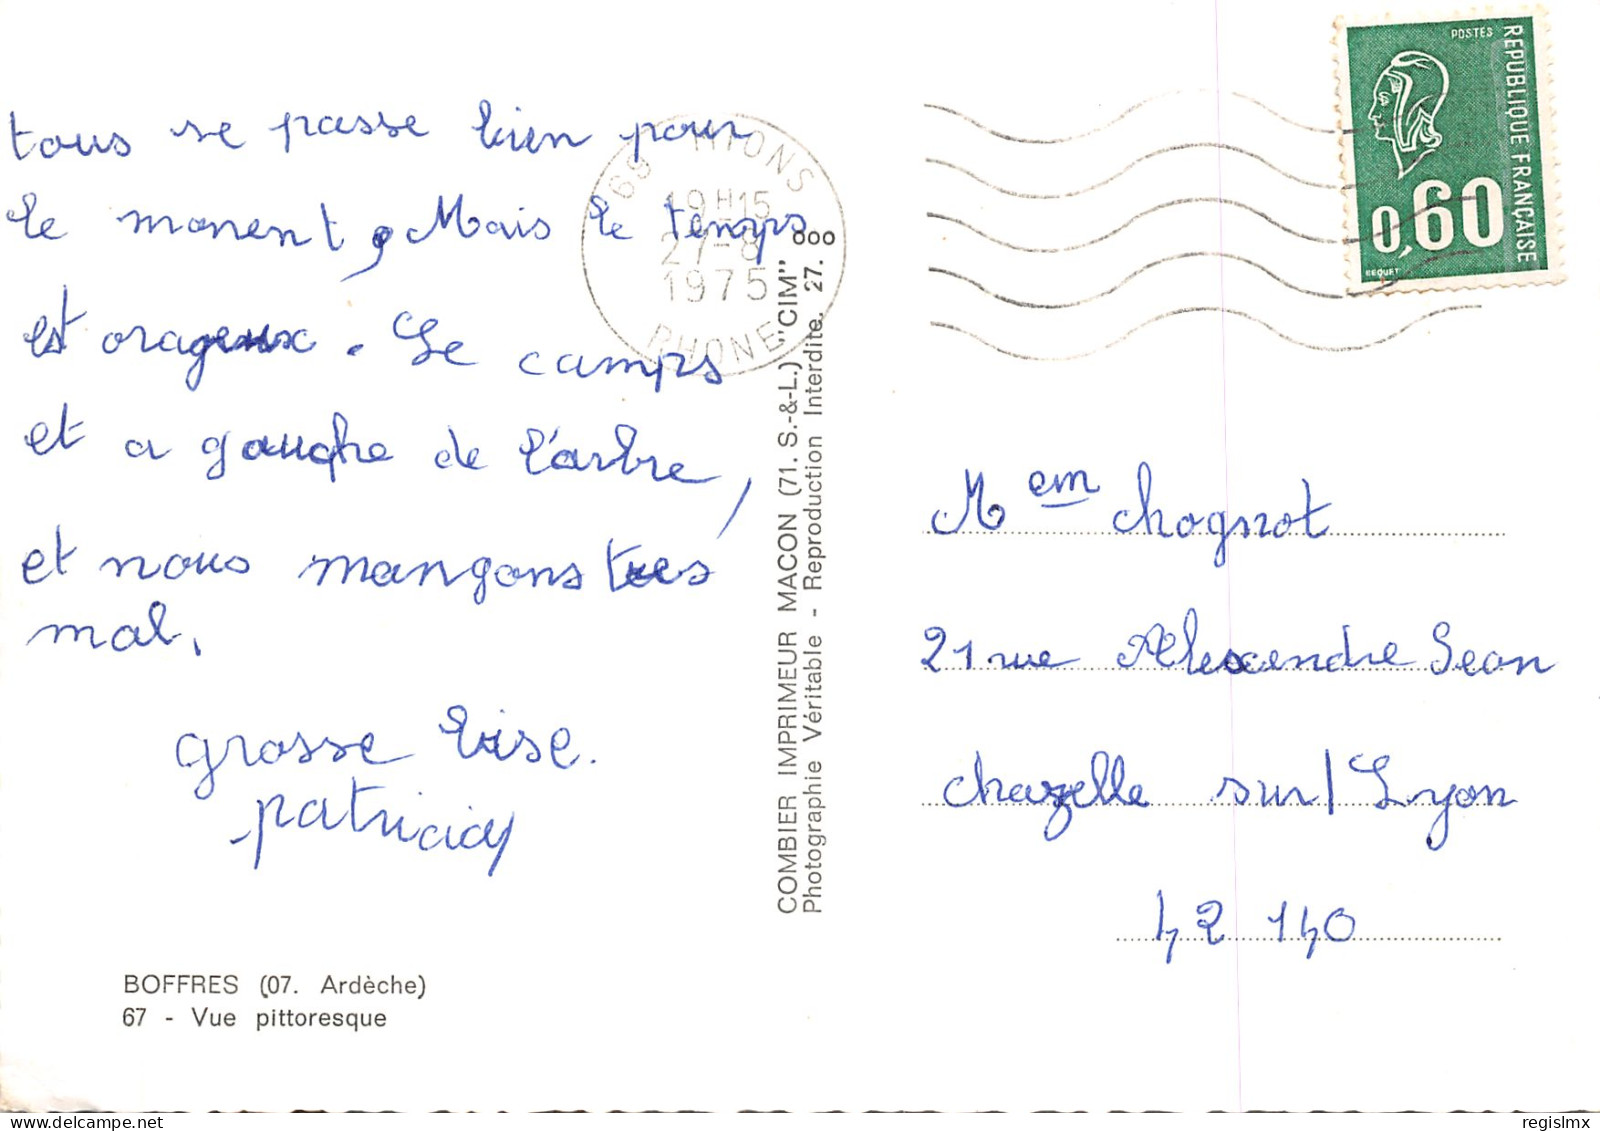 tous se passe bien pour
le monent, Mais le temps
est orageux. Le camps
et a gauche de l'arbre,
et nous mangons tres
mal.
grosse bise.
patricia
BOFFRES (07. Ardèche)
67 - Vue pittoresque
COMBIER IMPRIMEUR MACON (71. S.-&-L.) "CIM"
Photographie Véritable - Reproduction Interdite. 27.
69 MIONS
19H15
27-8
1975
RHONE
POSTES
REPUBLIQUE FRANÇAISE
0,60
BEQUET
Mem chognot
21 rue Alexendre Jean
chazelle sur/Lyon
42 140
regislmx